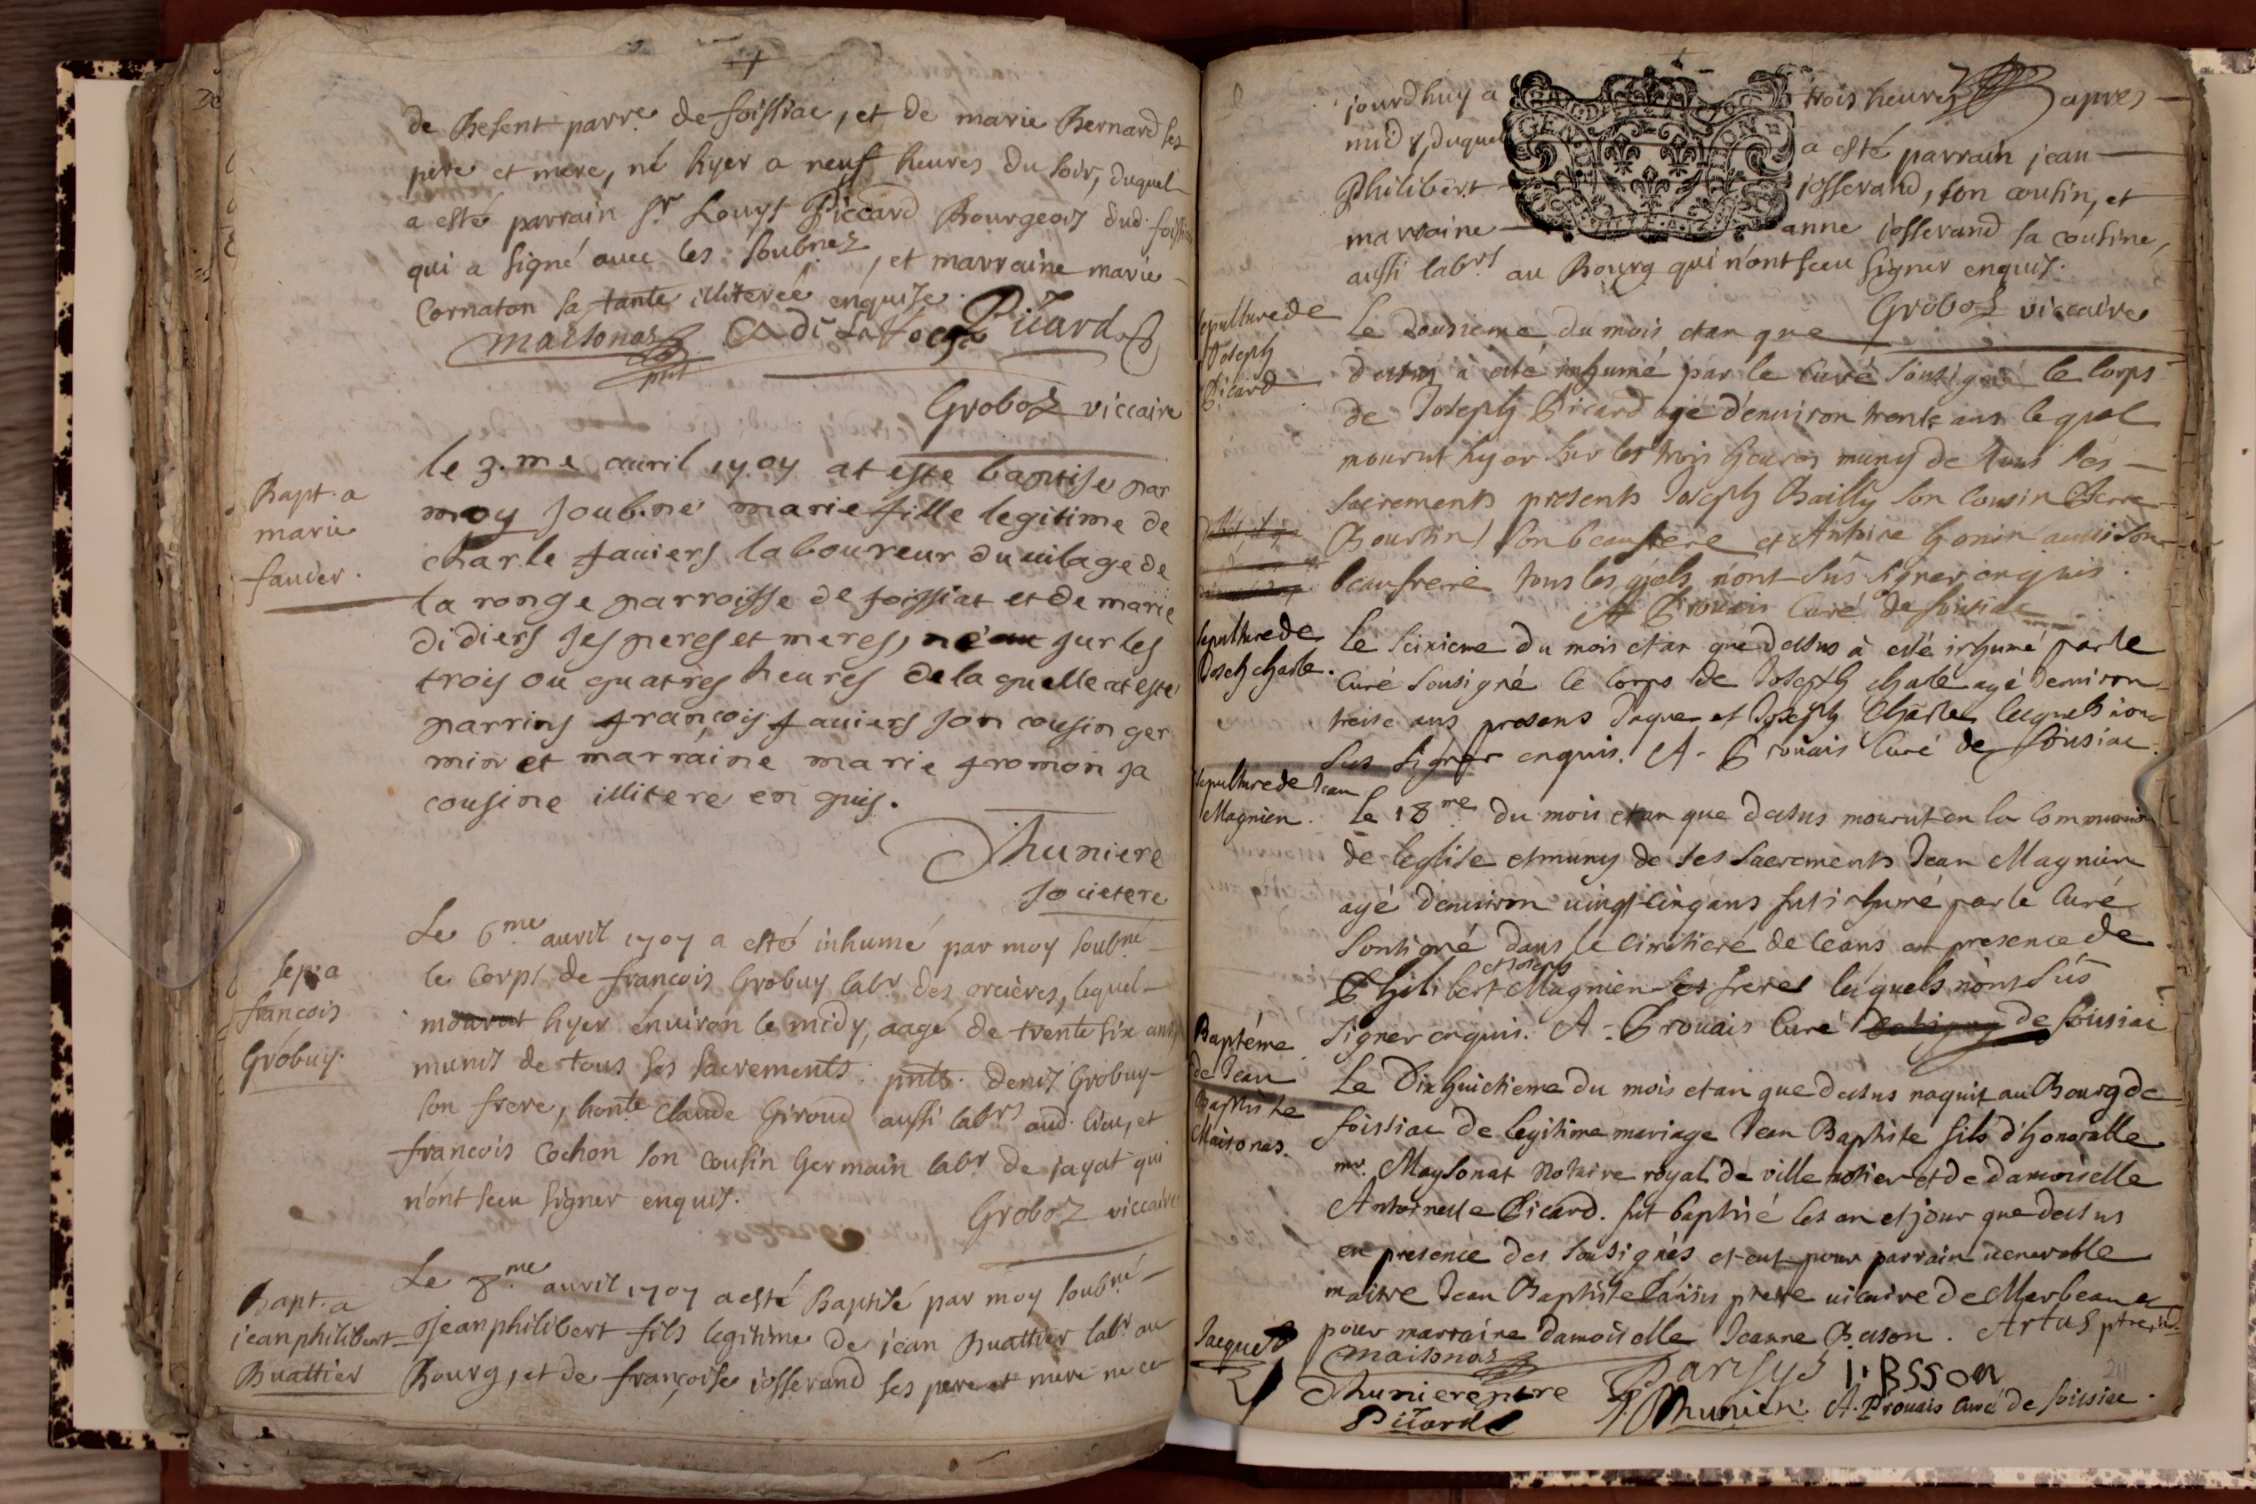 de Besent parr.e de foissiac, et de marie Bernard ses
pere et mere, né hyer a neuf heures du soir, duquel
a esté parrain Sr. Louys Piccard Bourgeois dud.
qui a signé avec les soubnez, et marraine marie
Cornaton sa tante illiterée enquise.
maisonas Picard
Groboz viccaire
Bapt. a
marie
favier.
le 3.me avril 1707 at este baptise par
moy soub.ne marie fille legitime de
charle faviers laboureur du vilage de
la ronge parroisse de foissiat et de marie
didiers ses peres et meres, sur les
trois ou quatres heures de la quelle at este
parrins françois faviers son cousin ger
min et marraine marie fromon sa
cousine illitere en quis.
Thuniere
societere
sep. a
francois
Grobuy.
Le 6.me avril 1707 a esté inhumé par moy soubné
le corps de francois Grobuy labr des orcières, lequel
mourut hyer environ le midy, aagé de trente six ans
munis de tous ses sacrements. pnts. denis Grobuy
son frere, honte. Claude Giroud aussi labrs aud. lieu, et
francois Cochon son cousin germain labr de jayat qui
n'ont sceu signer enquis.
Groboz viccaire
Bapt. a
jean philibert
Buattier
Le 8.me avril 1707 a esté Baptisé par moy soubné
jean philibert fils legitime de jean Buattier labr au
Bourg, et de françoise josserand ses pere et mere ne ce
jourdhuy a trois heures apres
midy, duquel a esté parrain jean
Philibert josserand, son cousin, et
marraine anne josserand sa cousine,
aussi labrs au Bourg qui n'ont sceu signer enquis.
Groboz viccaire
sepulture de
Joseph
Picard
Le dousieme du mois et an que
dessus à esté inhumé par le curé sousigné le corps
de Joseph Picard agé d'environ trente ans le quel
mourut hyer sur les trois heures muny de tous ses
sacrements presents Joseph Bailly son cousin Pierre
Bourtin son beaufrere et Antoine Gonin aussi son
beaufrere tous les quels n'ont sus signer enquis.
A Prouais Curé de foissiac
sepulture de
Joseph charle.
Le seixieme du mois et an que dessus à esté inhumé par le
Curé sousigné le corps de Joseph charle agé denviron
treise ans presens Jaque et Joseph Charle lesquels n'on
sus signer enquis. A. Prouais Curé de foissiac.
sepulture de Jean
Magnien.
Le 18.me du mois et an que dessus mourut en la communion
de leglise et muny de ses sacrements Jean Magnien
agé denviron vingt cinq ans fut inhumé par le Curé
sousigné dans le cimitiere de ceans en presence de
Philibert Magnien freres lesquels n'ont sus
signer enquis. A. Prouais Curé de foissiac
Baptéme
de Jean
Baptiste
Maisonas.
Le Dix huictieme du mois et an que dessus naquit au Bourg de
foissiac de legitime mariage Jean Baptiste fils d'honorable
mr. Maysonat Notaire royal de ville motier et de damoiselle
Antoinette Picard. fut baptisé les an et jour que dessus
en presence des sousignés et eut pour parrain venerable
maitre Jean Baptiste pretre vicaire de Marbeau et
pour marraine damoiselle Jeanne Besson. Artus
Jacques
maisonas
Thuniere ptre
Picard
A. Prouais Curé de foissiac.